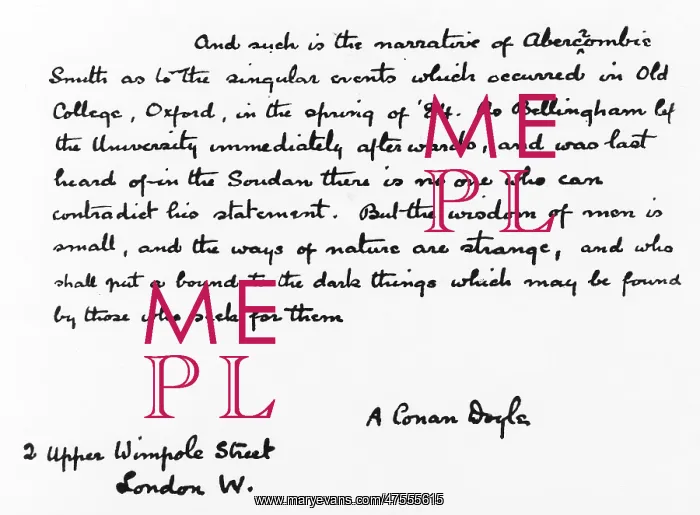 And such is the narrative of Abercrombie
Smith as to the singular events which occurred in Old
College, Oxford, in the spring of '84. As Bellingham left
the University immediately afterwards, and was last
heard of in the Soudan there is no one who can
contradict his statement. But the wisdom of men is
small, and the ways of nature are strange, and who
shall put a bound to the dark things which may be found
by those who seek for them
A Conan Doyle
2 Upper Wimpole Street
London W.
ME
PL
ME
PL
www.maryevans.com/47555615